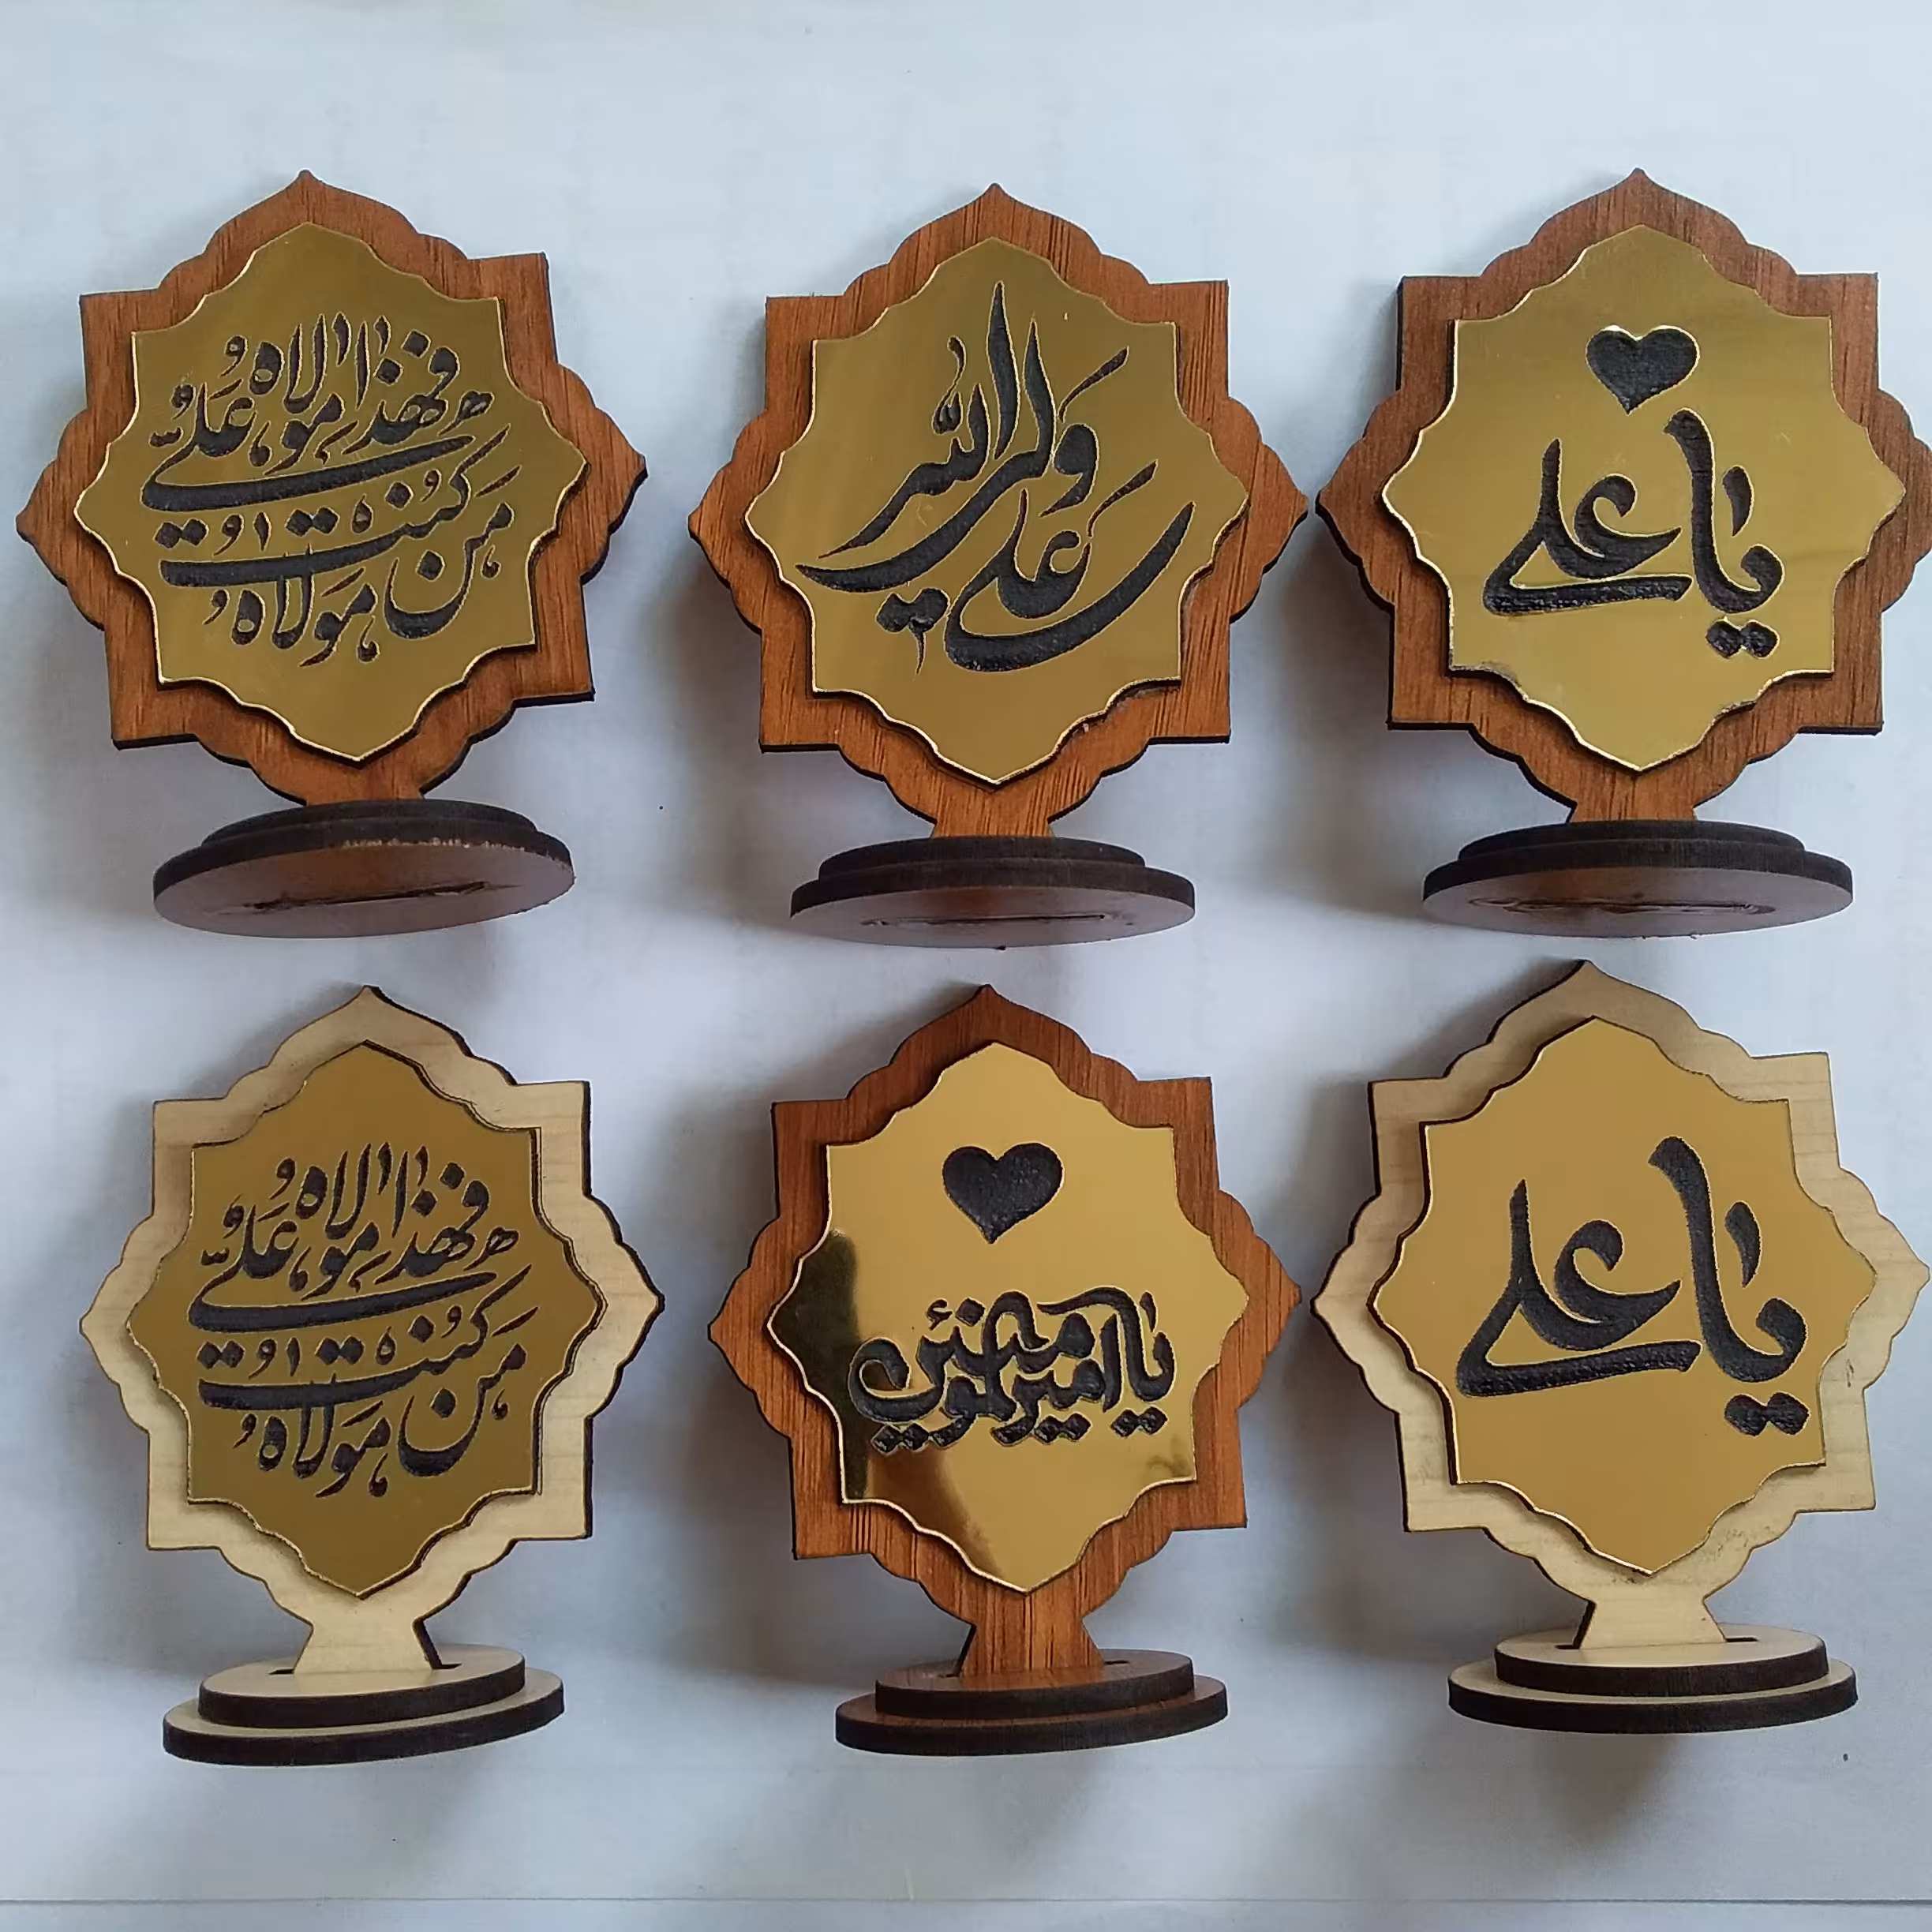 من کنت مولاه فهذا علی مولاه
علی ولی الله
یا علی
من کنت مولاه فهذا علی مولاه
یا امیرالمومنین
یا علی